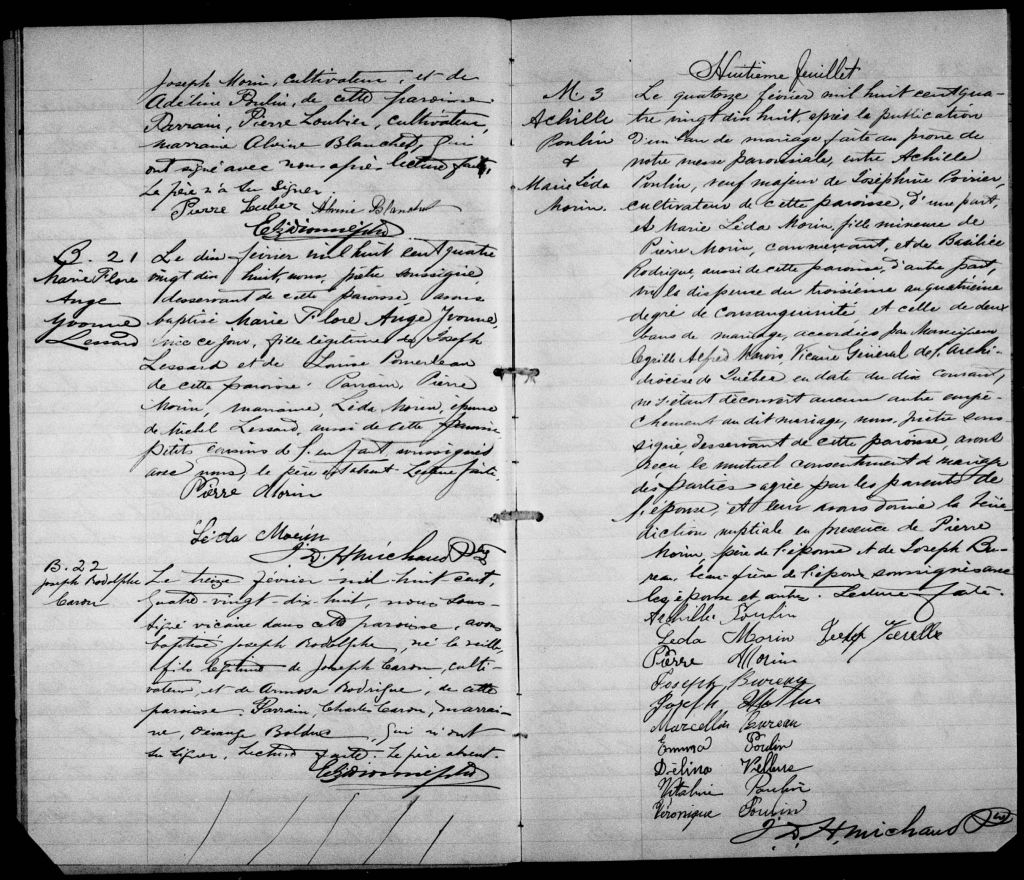 Joseph Morin, cultivateur, et de
Adéline Poulin, de cette paroisse.
Parrain, Pierre Loubier, cultivateur,
marraine Alvine Blanchet, qui
ont signé avec nous après lecture faite,
Le père n'a su signer.
Pierre Lubier Alvine Blanchet
B. 21
Marie Flore
Ange
Yvonne
Lessard
Le dix février mil huit cent quatre
vingt dix huit, nous, prêtre soussigné,
desservant de cette paroisse, avons
baptisé Marie Flore Ange Yvonne,
née ce jour, fille légitime de Joseph
Lessard et de Louise Pomerleau
de cette paroisse. Parrain, Pierre
Morin, marraine, Léda Morin, épouse
de Michel Lessard, aussi de cette paroisse
petits cousins de l'enfant soussignés
avec nous, le père est absent. Lecture faite.
Pierre Morin
Léda Morin
J. D. A. Michaud Ptre
B. 22
Joseph Rodolphe
Caron
Le treize février mil huit cent,
quatre-vingt-dix-huit, nous sous-
signé vicaire dans cette paroisse, avons
baptisé Joseph Rodolphe, né la veille,
fils légitime de Joseph Caron, culti-
vateur, et de Armosa Rodrigue, de cette
paroisse. Parrain, Charles Caron, marrai-
ne, Bolduc, qui n'ont
su signer. Lecture faite. Le père absent.
Huitième feuillet
M. 3
Achille
Poulin
&
Marie Léda
Morin.
Le quatorze février mil huit cent qua-
tre vingt dix huit, après la publication
d'un ban de mariage faite au prône de
notre messe paroissiale, entre Achille
Poulin, veuf majeur de Joséphine Poirier,
cultivateur de cette paroisse, d'une part,
et Marie Léda Morin, fille mineure de
Pierre Morin, commerçant, et de Basilice
Rodrigue, aussi de cette paroisse, d'autre part,
vu la dispense du troisième au quatrième
degré de consanguinité et celle de deux
bans de mariage, accordées par Monseigneur
Cyrille Alfred Marois Vicaire Général de l'Archi-
diocèse de Québec en date du dix courant,
ne s'étant découvert aucun autre empê-
chement au dit mariage, nous, prêtre sous-
signé, desservant de cette paroisse, avons
reçu le mutuel consentement de mariage
des parties agréé par les parents de
l'épouse, et leur avons donné la béné-
diction nuptiale en présence de Pierre
Morin, père de l'épouse et de Joseph Bu-
reau, beau-frère de l'époux soussignés avec
les époux et autres. Lecture faite.
Achille Poulin
Léda Morin Joseph
Pierre Morin
Joseph Bureau
Joseph Mathieu
Marcellin Bureau
Emma Poulin
Délina
Vitaline Poulin
Véronique Poulin
J. D. A. Michaud Ptre